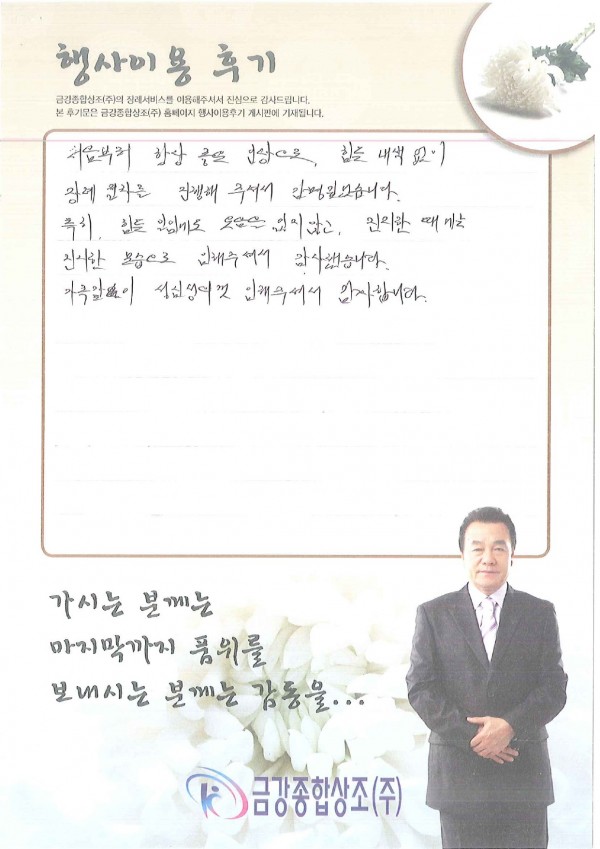 행사이용 후기
금강종합상조(주)의 장례서비스를 이용해주셔서 진심으로 감사드립니다.
본 후기문은 금강종합상조(주) 홈페이지 행사이용후기 게시판에 기재됩니다.
처음부터 항상 웃는 인상으로, 힘든 내색 없이
장례 절차를 진행해 주셔서 감명깊었습니다.
특히, 힘든 와중에도 웃음을 잃지않고, 진지한 때에는
진지한 모습으로 임해주셔서 감사했습니다.
가족같이 성심성의껏 임해주셔서 감사합니다.
가시는 분께는
마지막까지 품위를
보내시는 분께는 감동을...
금강종합상조(주)